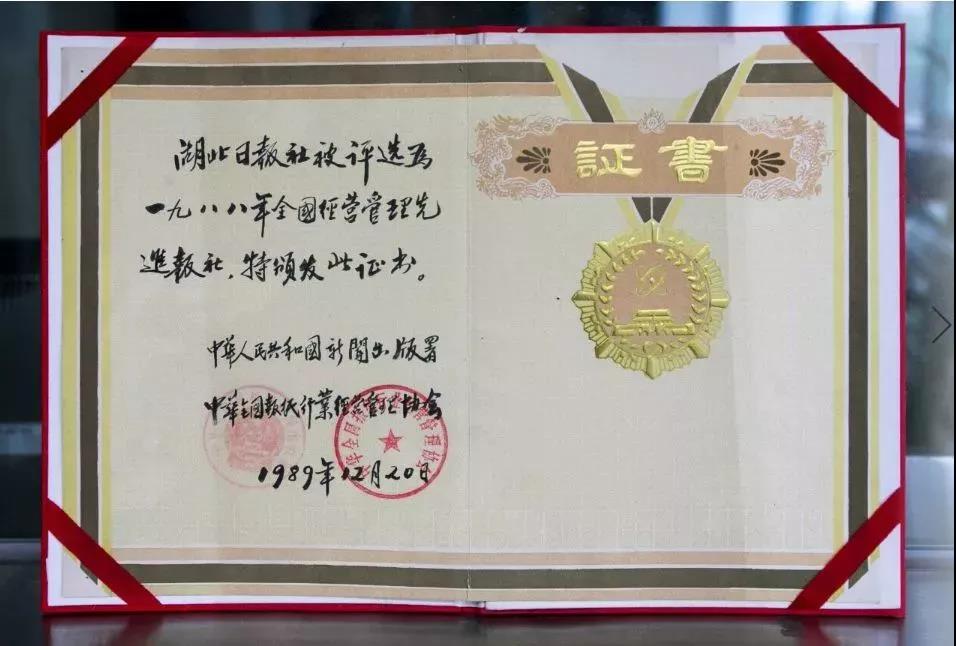 湖北日報社被评选为
一九八八年全國經营管理先
進報社，特頒发此证书。
中華人民共和國新聞出版署
中華全國報紙行業經营管理协会
1989年12月20日
証書